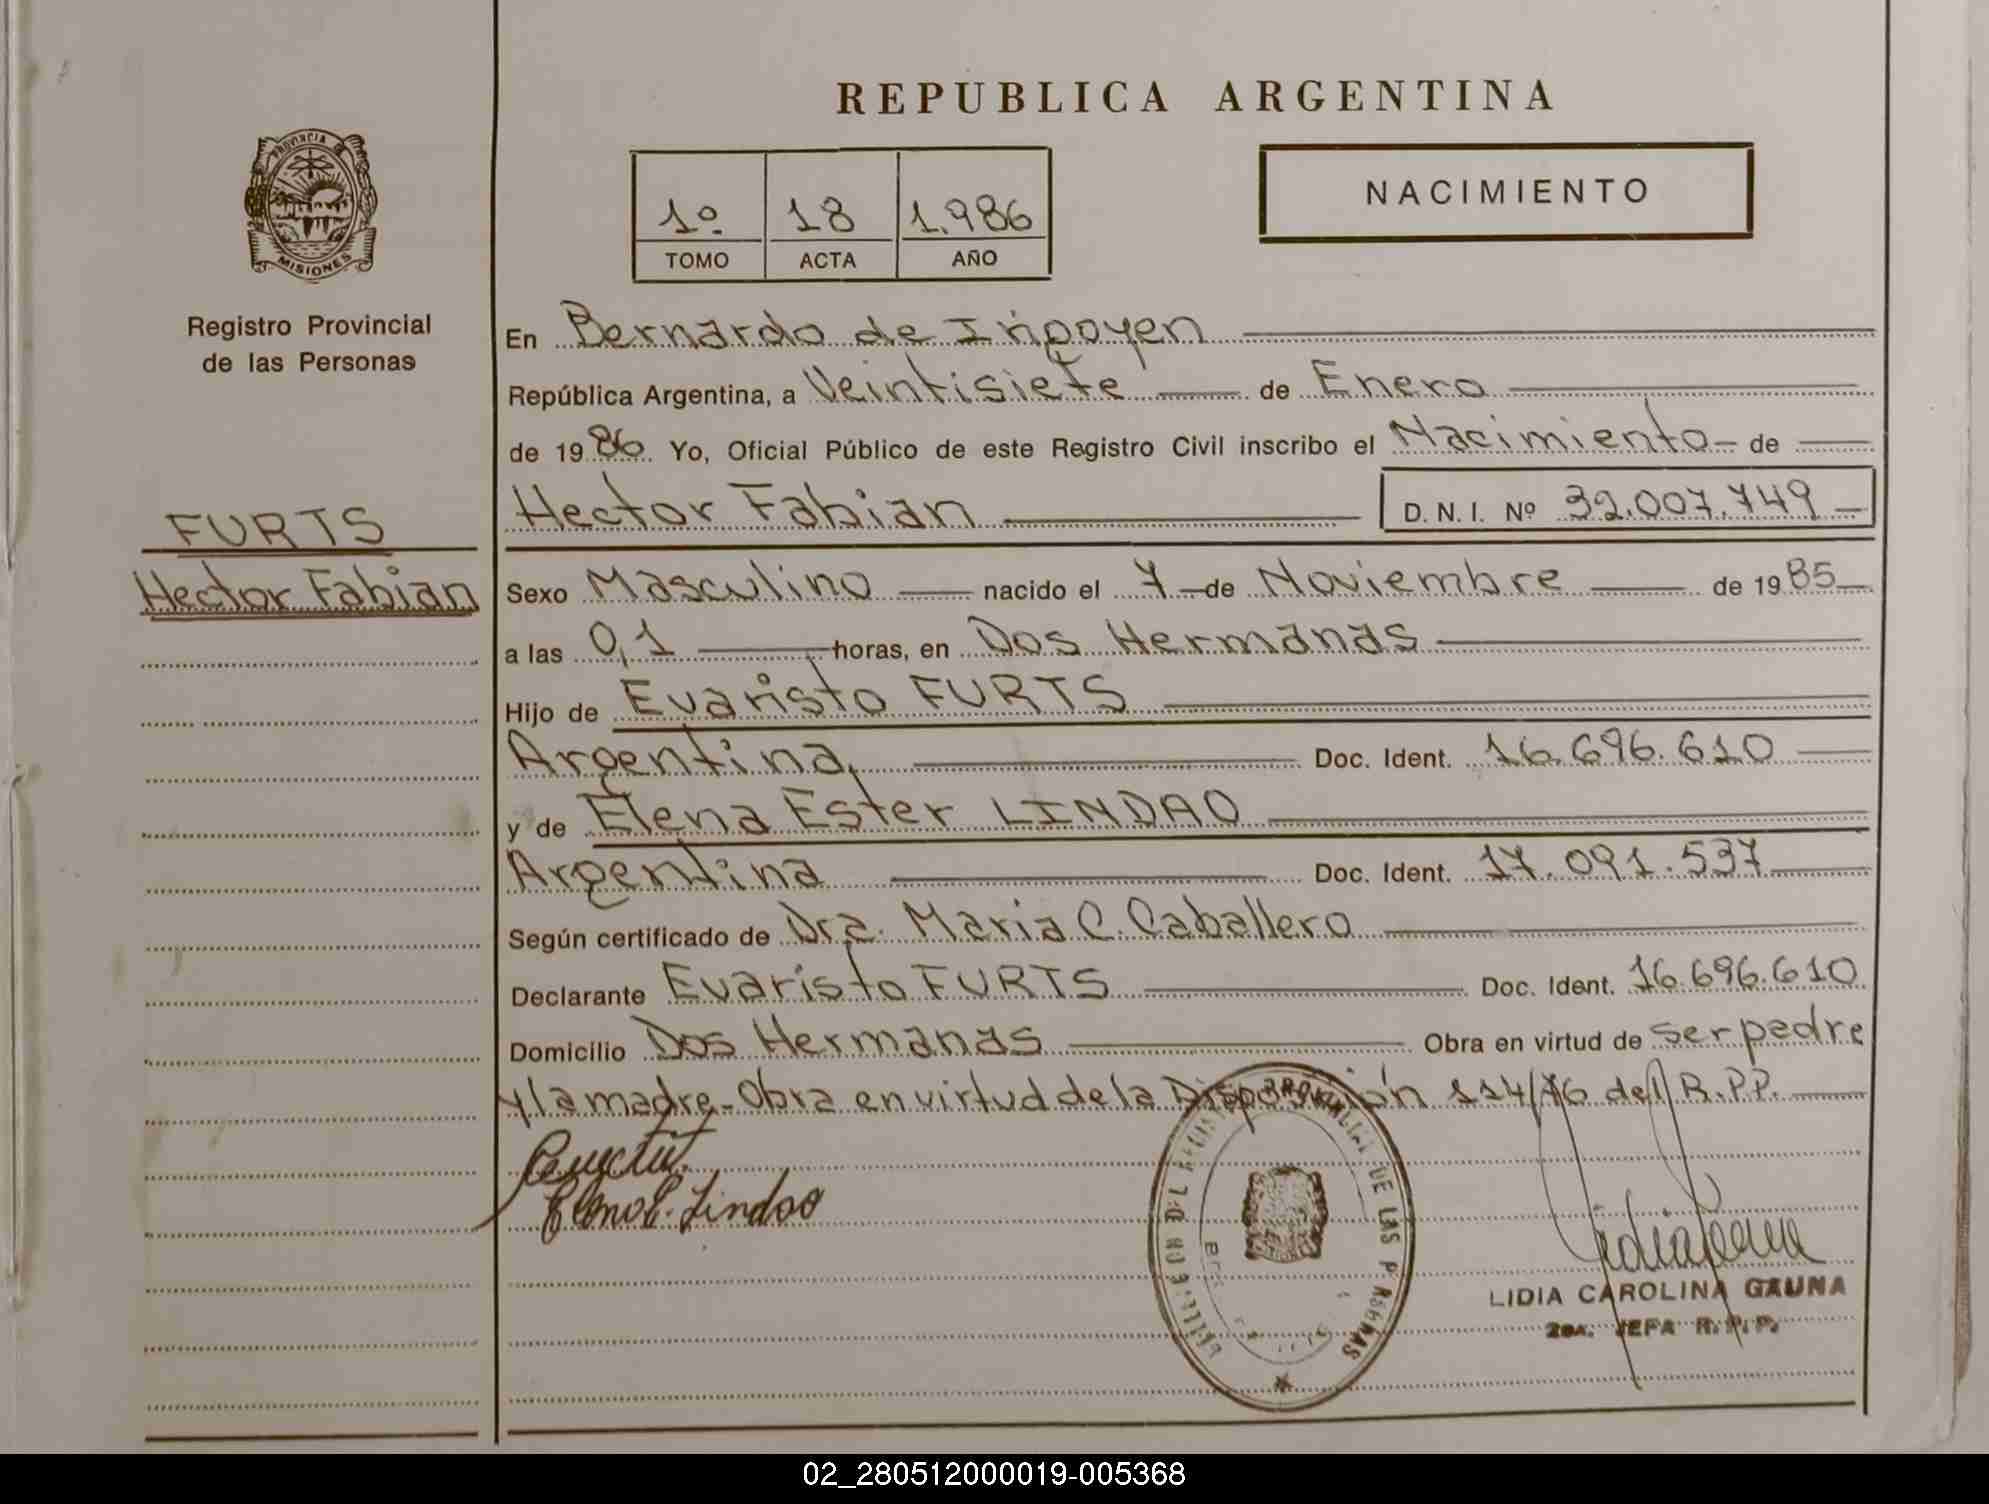 REPUBLICA ARGENTINA
PROVINCIA DE
MISIONES
Registro Provincial
de las Personas
1º 18 1.986
TOMO ACTA AÑO
NACIMIENTO
En Bernardo de Irigoyen
República Argentina, a Veintisiete de Enero
de 1986 Yo, Oficial Público de este Registro Civil inscribo el Nacimiento de
Hector Fabian D. N. I. Nº 32.007.749
FURTS
Hector Fabian
Sexo Masculino nacido el 7 de Noviembre de 1985
a las 0,1 horas, en Dos Hermanas
Hijo de Evaristo FURTS
Argentina Doc. Ident. 16.696.610
y de Elena Ester LINDAO
Argentina Doc. Ident. 17.091.537
Según certificado de Dra. Maria C. Caballero
Declarante Evaristo FURTS Doc. Ident. 16.696.610
Domicilio Dos Hermanas Obra en virtud de ser padre
y la madre - Obra en virtud de la Disposición 114/76 del R.P.P.
Elena E. Lindao
DE LAS PERSONAS
LIDIA CAROLINA GAUNA
2da. JEFA R. P. P.
02_280512000019-005368